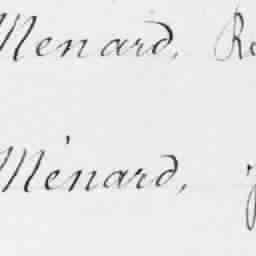 Menard, Re
Ménard,